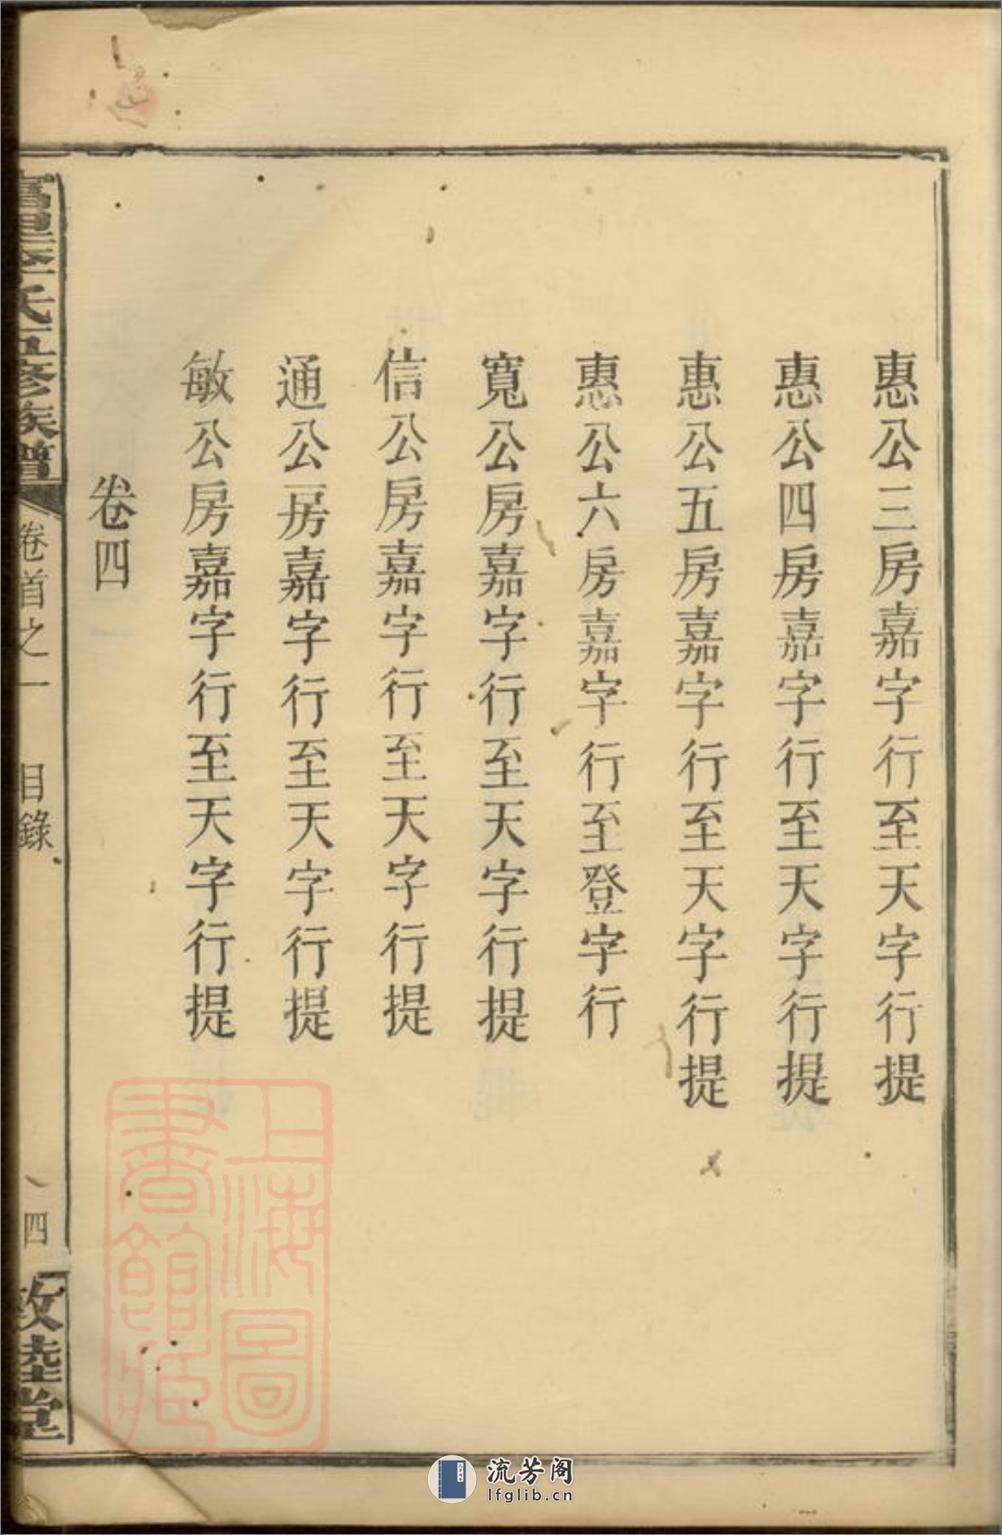 惠公三房嘉字行至天字行提
惠公四房嘉字行至天字行提
惠公五房嘉字行至天字行提
惠公六房嘉字行至登字行
寬公房嘉字行至天字行提
信公房嘉字行至天字行提
通公房嘉字行至天字行提
敏公房嘉字行至天字行提
卷四
李氏五修族譜
卷首之一 目錄
四
敦睦堂
上海圖
書館藏
流芳阁
lfglib.cn